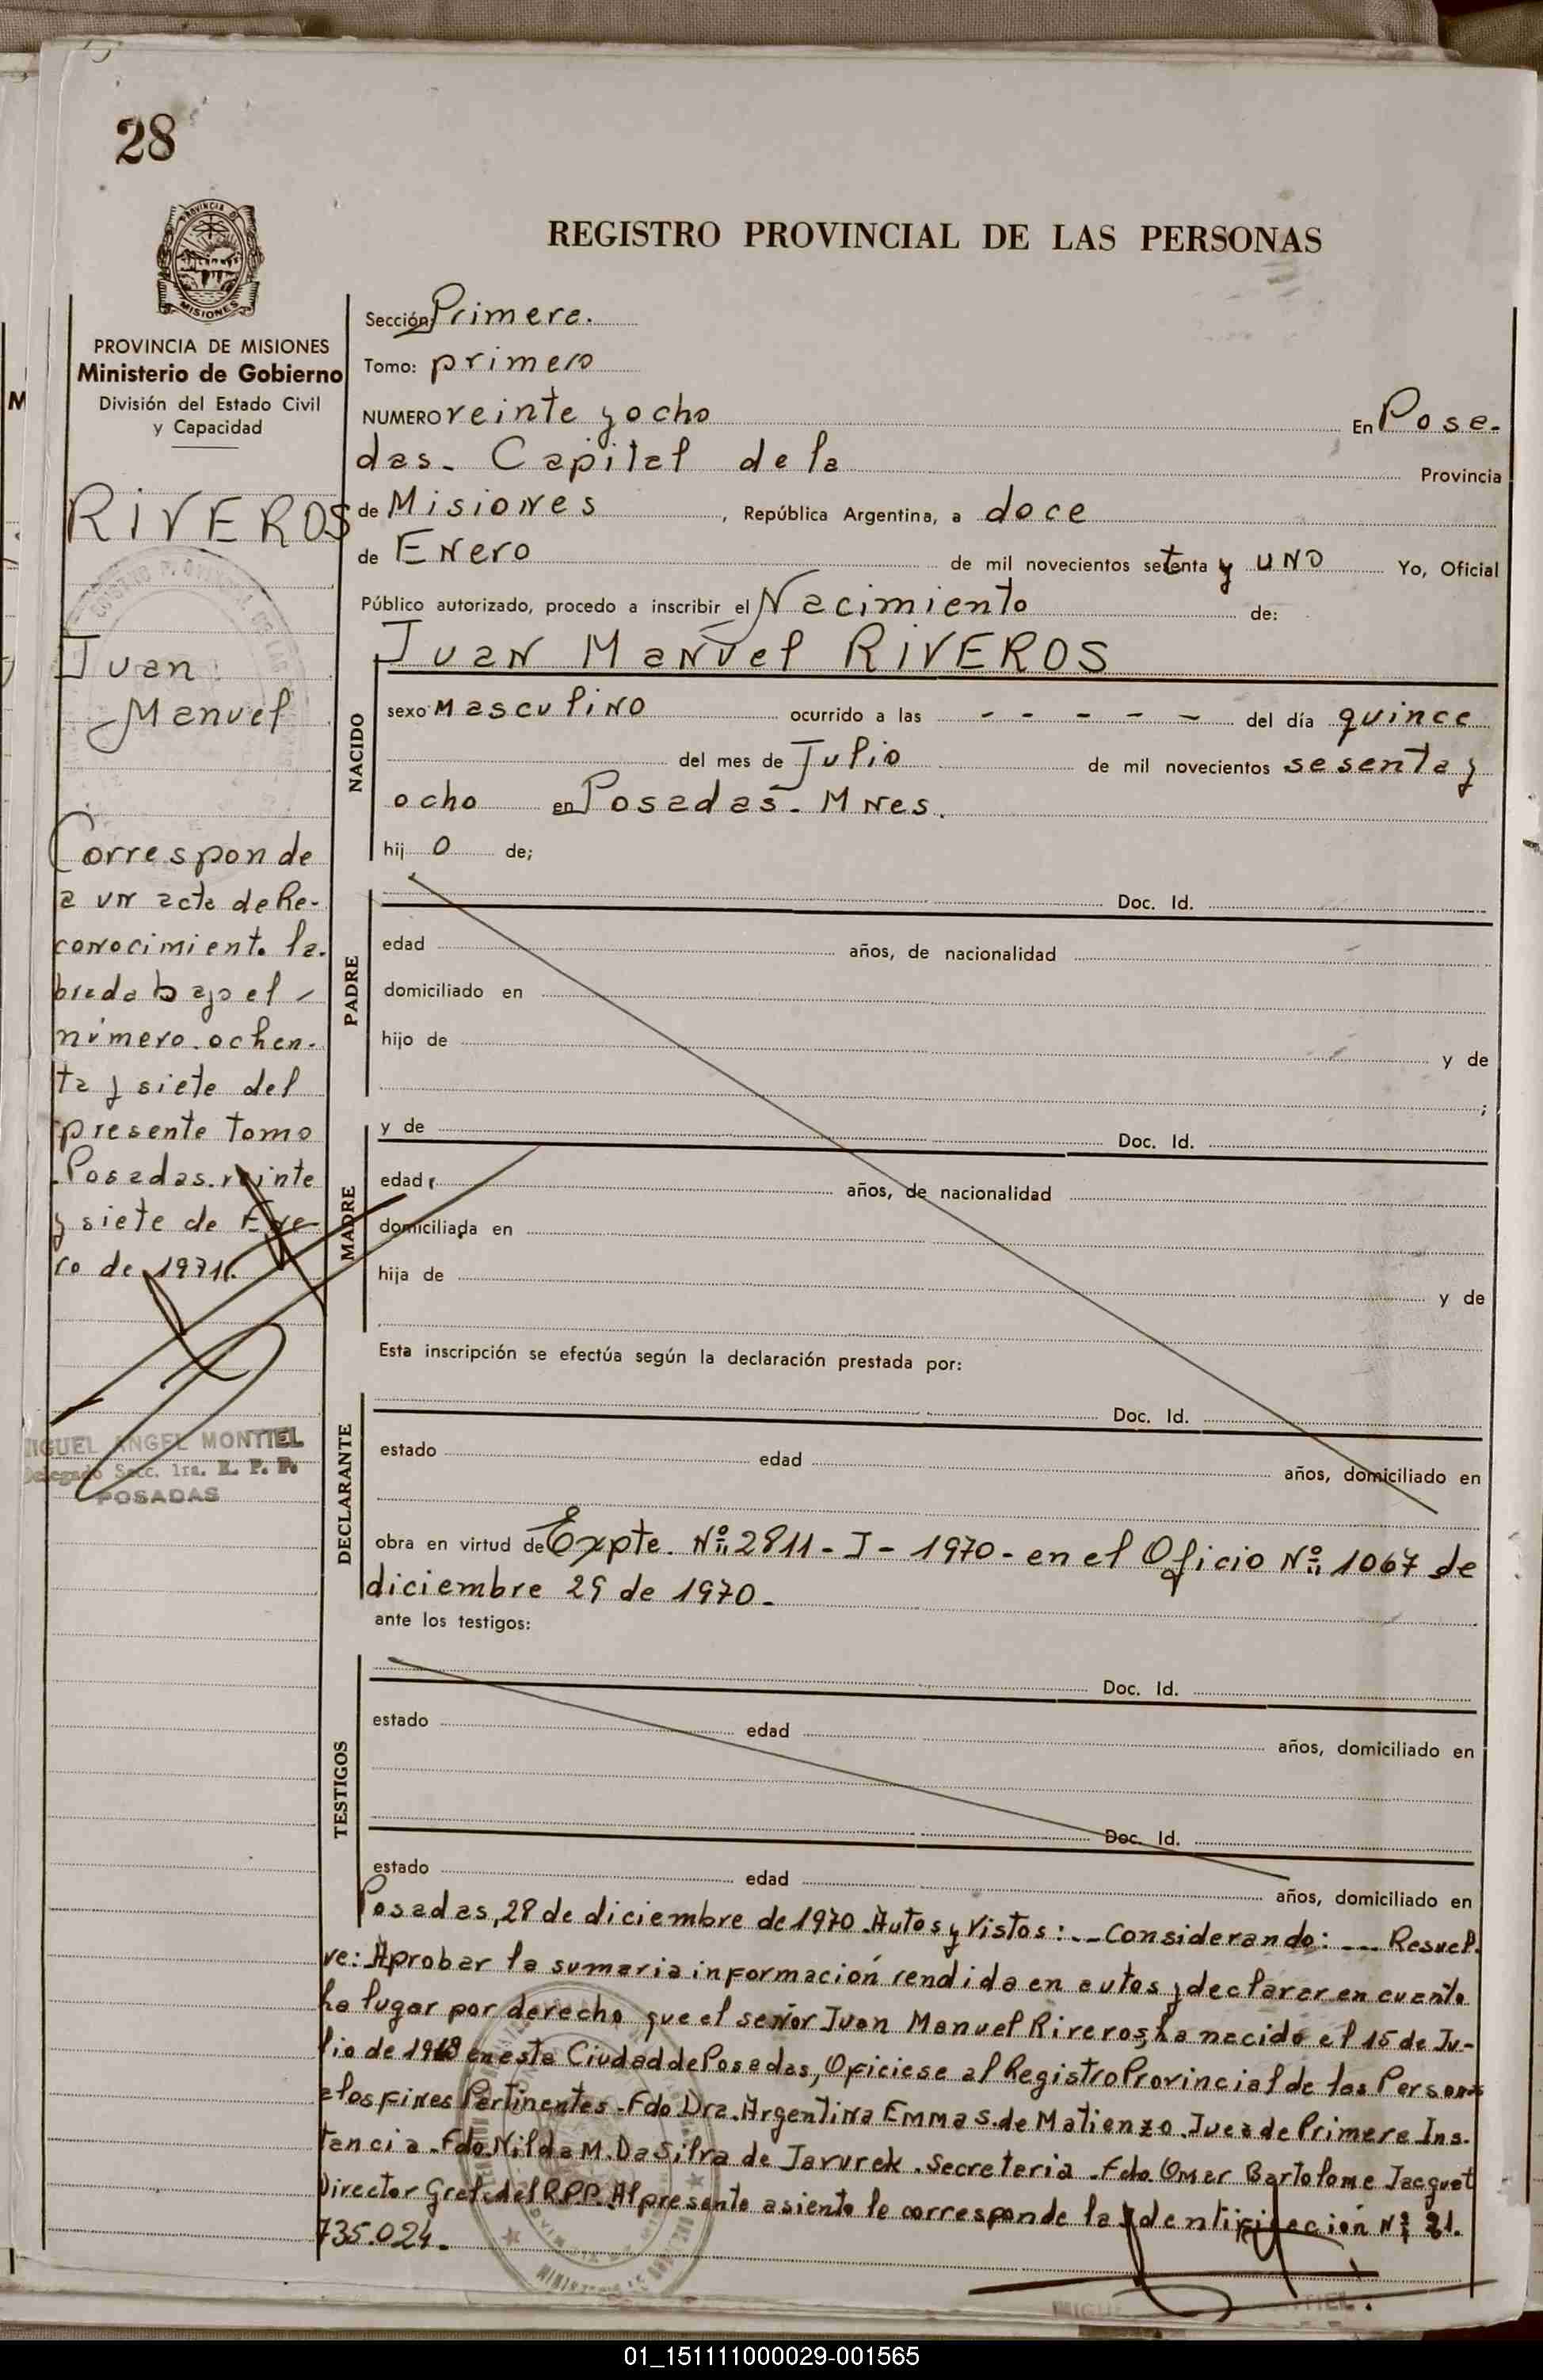 28
PROVINCIA DE
MISIONES
PROVINCIA DE MISIONES
Ministerio de Gobierno
División del Estado Civil
y Capacidad
RIVEROS
Juan
Manuel
Corresponde
a un acta de Re-
conocimiento la-
brada bajo el
número ochen-
ta y siete del
presente tomo
Posadas. veinte
y siete de Ene-
ro de 1971.
MIGUEL ANGEL MONTIEL
Delegado Secc. 1ra. R. P. P.
POSADAS
REGISTRO PROVINCIAL DE LAS PERSONAS
Sección: Primera.
Tomo: primero
NUMERO veinte y ocho En Posa-
das. Capital de la Provincia
de Misiones, República Argentina, a doce
de Enero de mil novecientos setenta y uno Yo, Oficial
Público autorizado, procedo a inscribir el Nacimiento de:
Juan Manuel RIVEROS
NACIDO
sexo Masculino ocurrido a las - - - - - del día quince
del mes de Julio de mil novecientos sesenta y
ocho en Posadas. Mnes.
hij o de;
PADRE
Doc. Id.
edad años, de nacionalidad
domiciliado en
hijo de y de
;
MADRE
y de Doc. Id.
edad años, de nacionalidad
domiciliada en
hija de y de
Esta inscripción se efectúa según la declaración prestada por:
DECLARANTE
Doc. Id.
estado edad años, domiciliado en
obra en virtud de Expte. Nº 2811 - J - 1970 - en el Oficio Nº 1067 de
diciembre 29 de 1970.
ante los testigos:
TESTIGOS
Doc. Id.
estado edad años, domiciliado en
Doc. Id.
estado edad años, domiciliado en
Posadas, 28 de diciembre de 1970. Autos y Vistos: -- Considerando: -- Resuel-
ve: Aprobar la sumaria información rendida en autos y declarar en cuanto
ha lugar por derecho que el señor Juan Manuel Riveros, ha nacido el 15 de Ju-
lio de 1968 en esta Ciudad de Posadas, Oficiese al Registro Provincial de las Personas
a los fines Pertinentes. Fdo Dra. Argentina Emma S. de Matienzo. Juez de Primera Ins-
tancia. Fdo. Nilda M. Da Silva de Javurek. Secretaria. Fdo. Omar Bartolome Jacquet
Director Gral. del R.P.P. Al presente asiento le corresponde la Identificación Nº 21.
735.024.
01_151111000029-001565